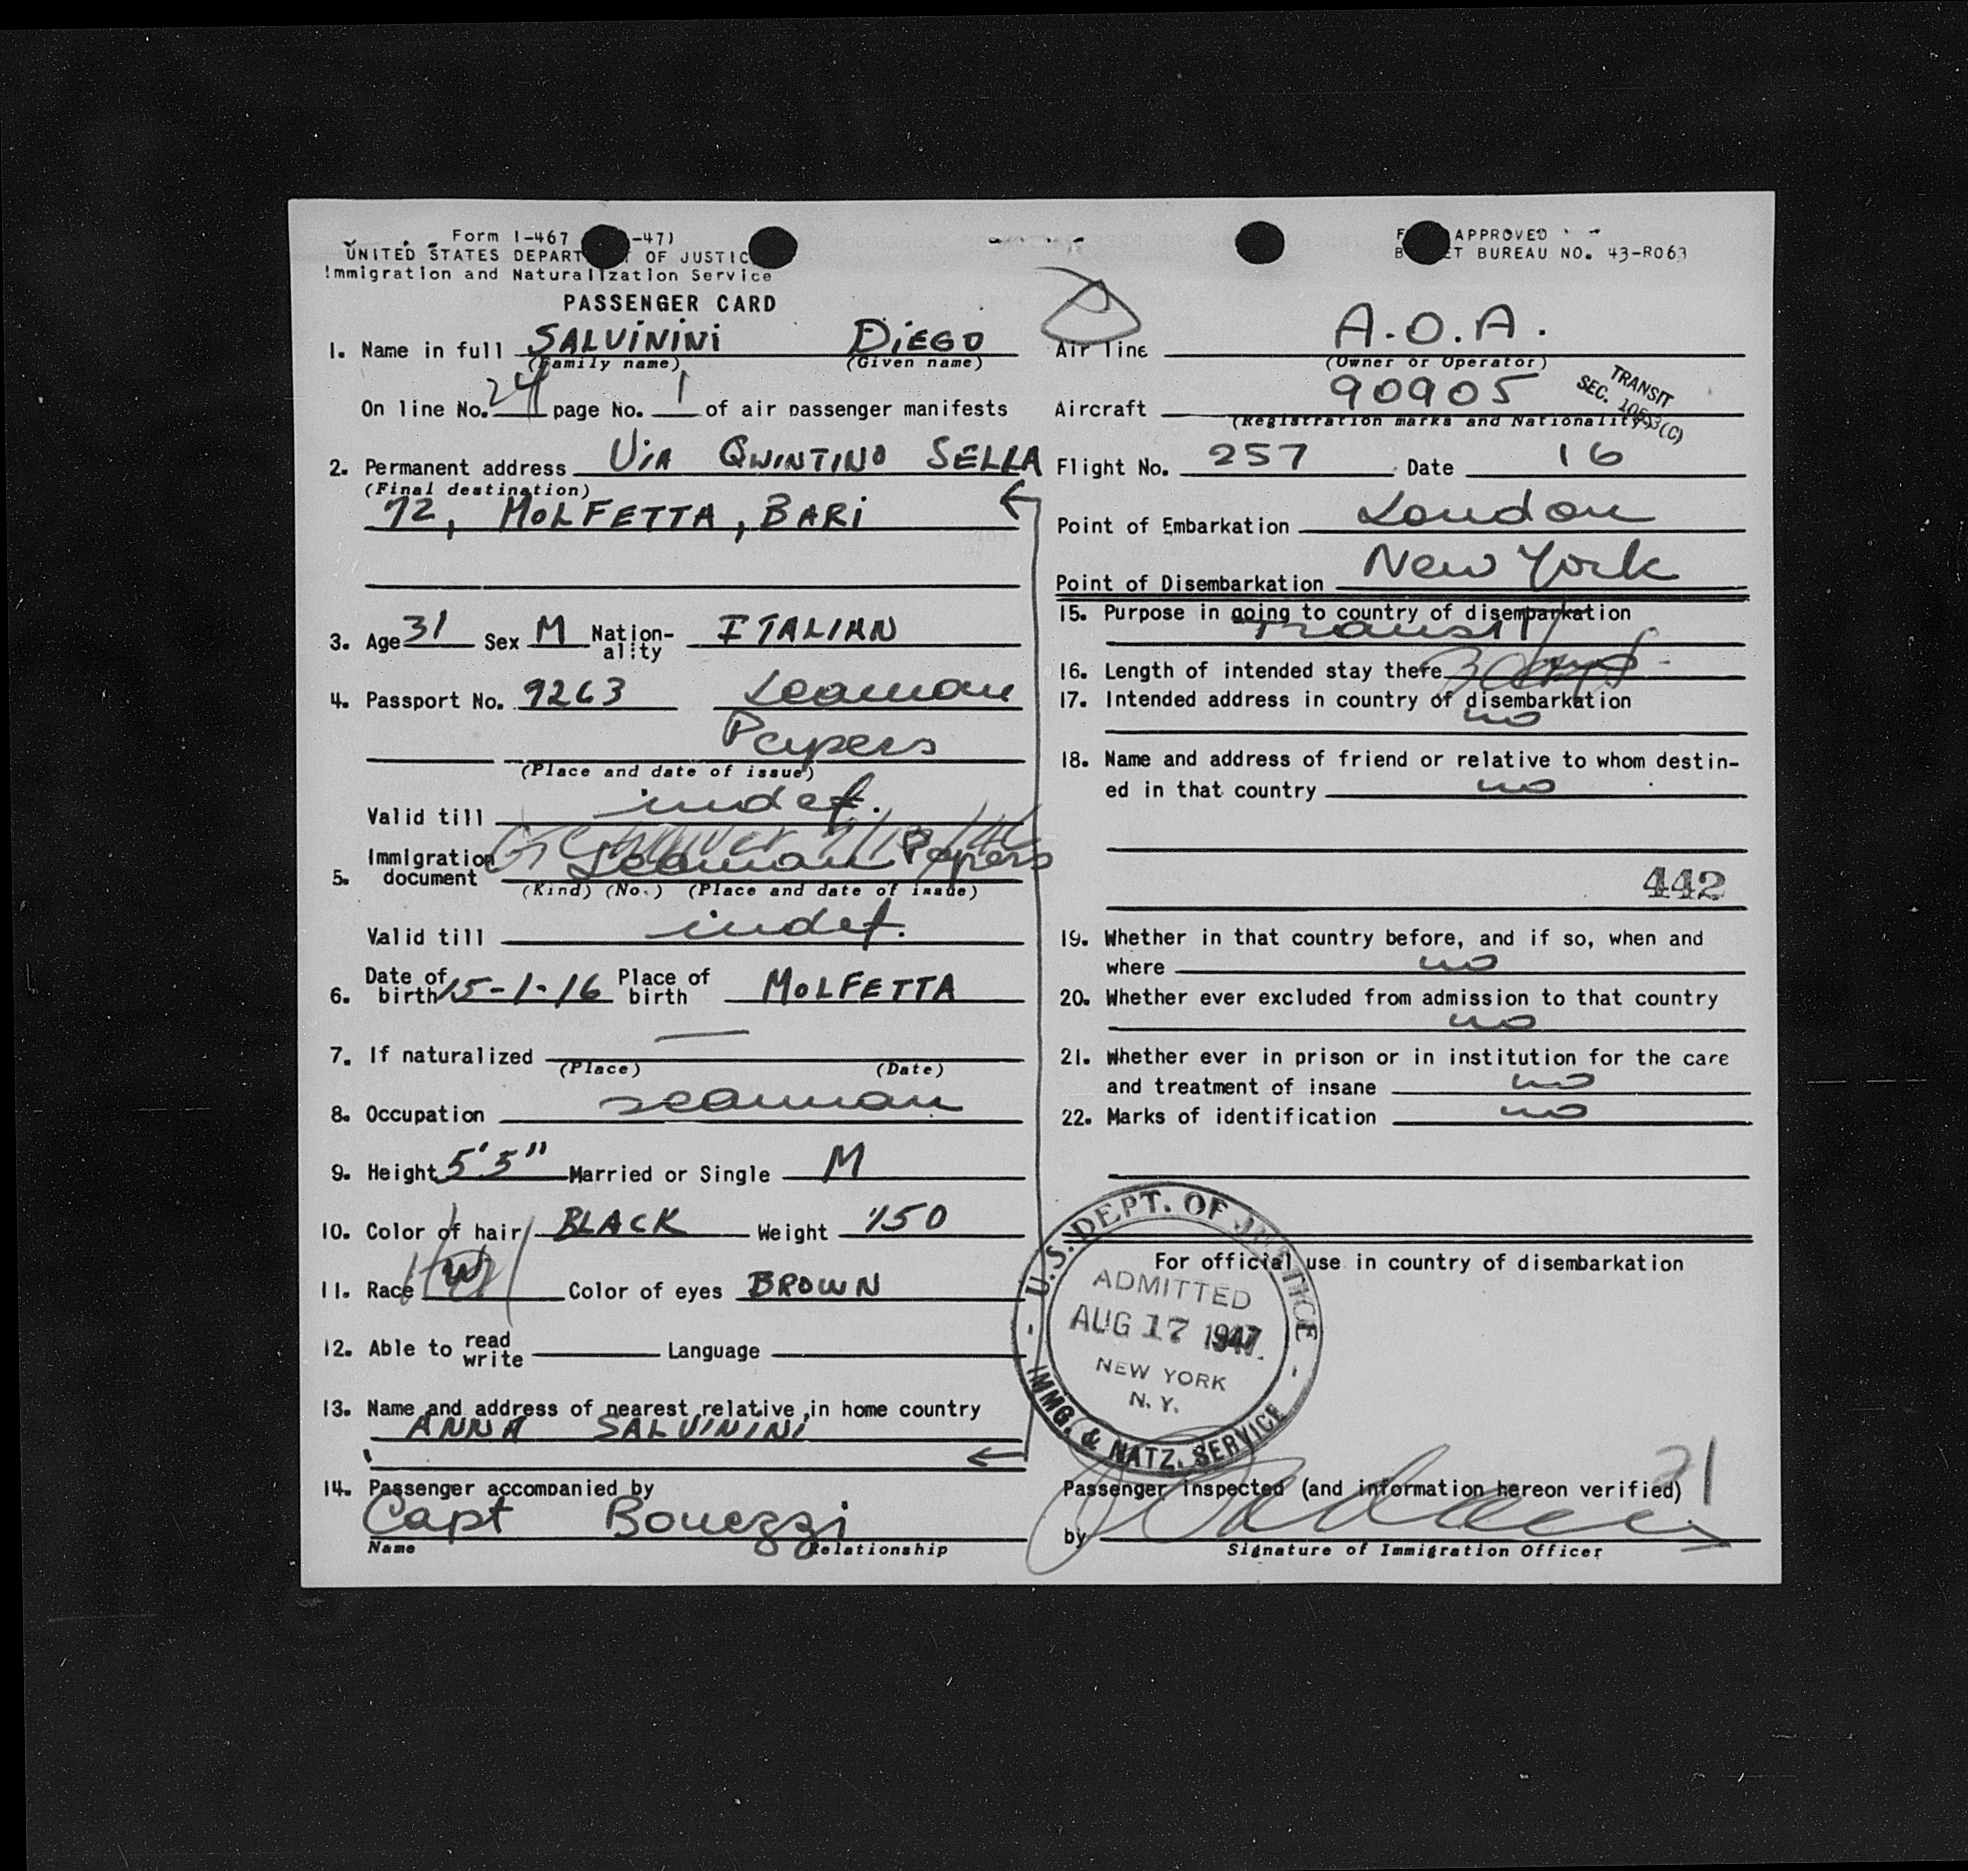 Form I-467 -47)
UNITED STATES DEPART OF JUSTIC
Immigration and Naturalization Service
PASSENGER CARD
APPROVED
ET BUREAU NO. 43-R063
1. Name in full SALViNiNi DiEGO
(Family name) (Given name)
On line No. 24 page No. 1 of air passenger manifests
2. Permanent address ViA QWINTINO SELLA
(Final destination)
72, MOLFETTA, BARi
3. Age 31 Sex M Nation-ality ITALIAN
4. Passport No. 9263 Seaman
Papers
(Place and date of issue)
Valid till indef.
5. Immigration document Seaman Papers
(Kind) (No.) (Place and date of issue)
Valid till indef.
6. Date of birth 15-1-16 Place of birth MOLFETTA
7. If naturalized —
(Place) (Date)
8. Occupation seaman
9. Height 5'5" Married or Single M
10. Color of hair BLACK Weight 150
11. Race W Color of eyes BROWN
12. Able to read write Language
13. Name and address of nearest relative in home country
ANNA SALVININI
14. Passenger accompanied by
Capt Bonezzi
Name Relationship
Air line A.O.A.
(Owner or Operator)
TRANSIT
SEC.
Aircraft 90905
(Registration marks and Nationality)
Flight No. 257 Date 16
Point of Embarkation London
Point of Disembarkation New York
15. Purpose in going to country of disembarkation
transit
16. Length of intended stay there 3 days
17. Intended address in country of disembarkation
no
18. Name and address of friend or relative to whom destin-
ed in that country no
442
19. Whether in that country before, and if so, when and
where no
20. Whether ever excluded from admission to that country
no
21. Whether ever in prison or in institution for the care
and treatment of insane no
22. Marks of identification no
For official use in country of disembarkation
U.S. DEPT. OF JUSTICE
ADMITTED
AUG 17 1947
NEW YORK
N.Y.
IMMG. & NATZ. SERVICE
Passenger inspected (and information hereon verified)
by
Signature of Immigration Officer